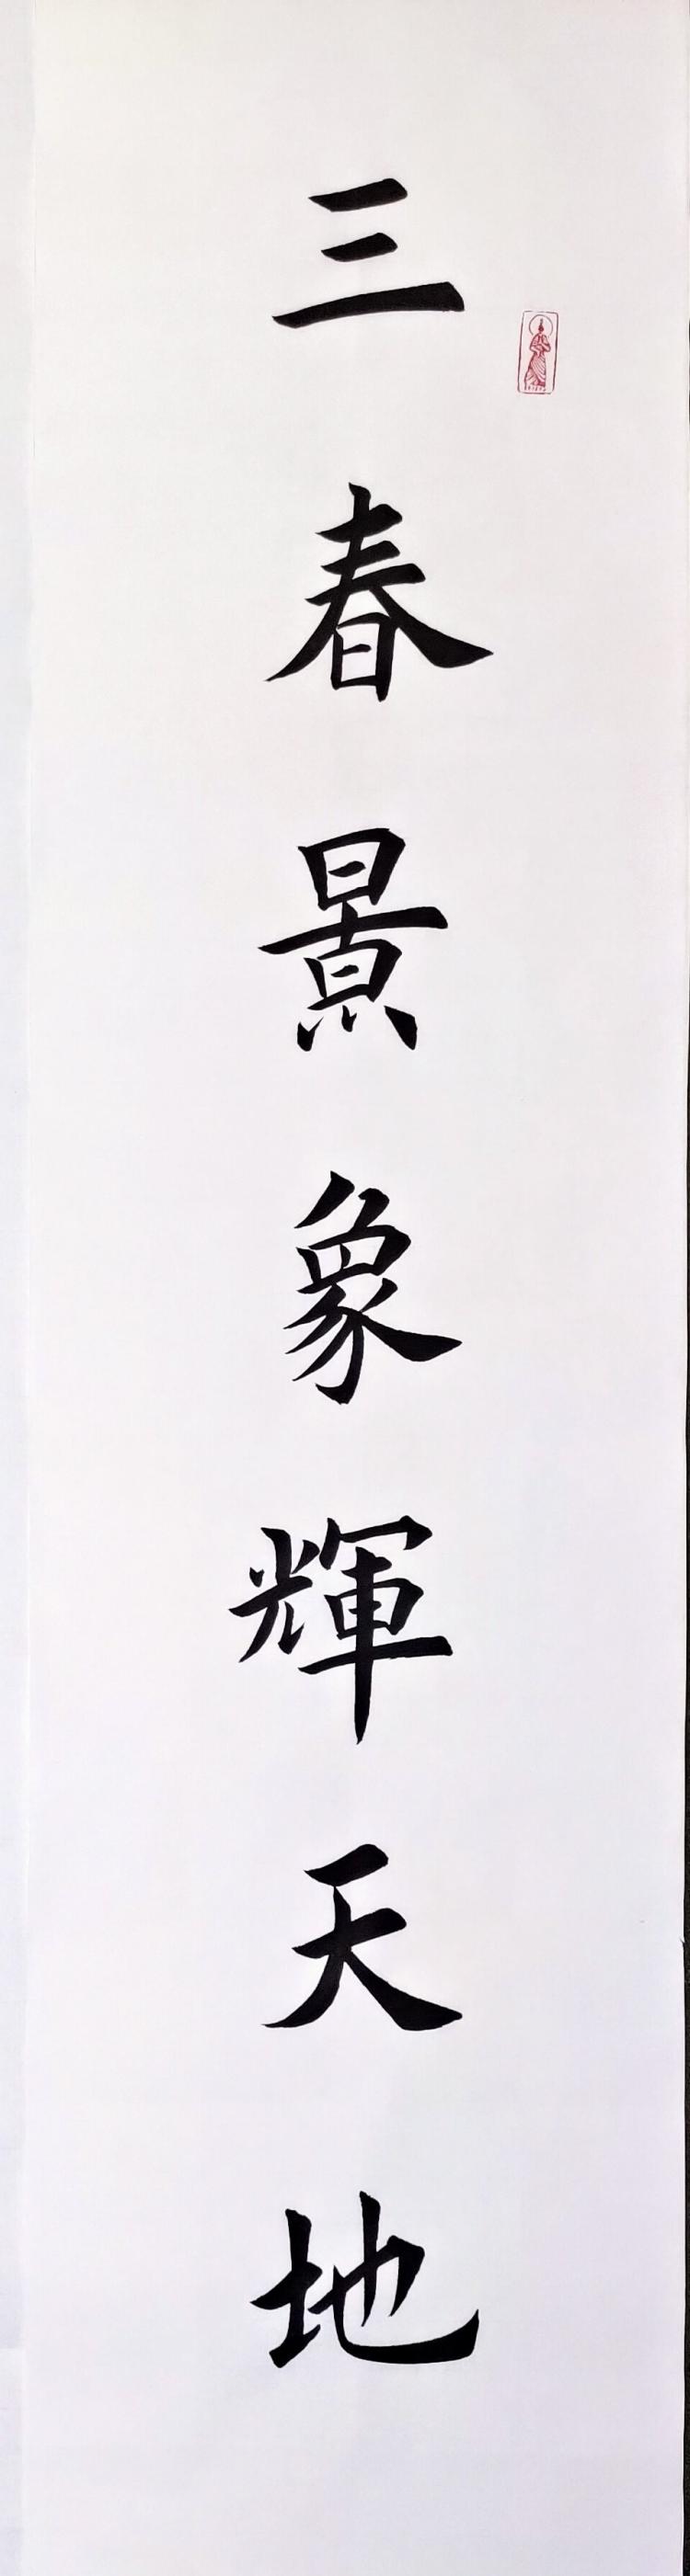 三春景象輝天地